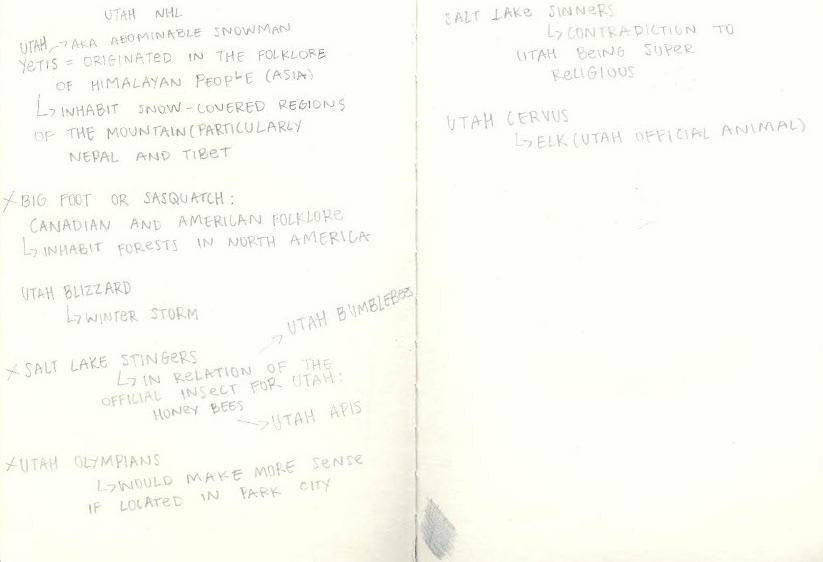 UTAH NHL
UTAH → AKA ABOMINABLE SNOWMAN
YETIS = ORIGINATED IN THE FOLKLORE
OF HIMALAYAN PEOPLE (ASIA)
↳ INHABIT SNOW-COVERED REGIONS
OF THE MOUNTAIN (PARTICULARLY
NEPAL AND TIBET
X BIG FOOT OR SASQUATCH:
CANADIAN AND AMERICAN FOLKLORE
↳ INHABIT FORESTS IN NORTH AMERICA
UTAH BLIZZARD
↳ WINTER STORM
→ UTAH BUMBLEBEES
X SALT LAKE STINGERS
↳ IN RELATION OF THE
OFFICIAL INSECT FOR UTAH:
HONEY BEES
→ UTAH APIS
X UTAH OLYMPIANS
↳ WOULD MAKE MORE SENSE
IF LOCATED IN PARK CITY
SALT LAKE SINNERS
↳ CONTRADICTION TO
UTAH BEING SUPER
RELIGIOUS
UTAH CERVUS
↳ ELK (UTAH OFFICIAL ANIMAL)